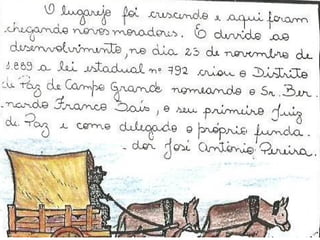 O lugarejo foi crescendo e aqui foram
chegando novos moradores. E devido ao
desenvolvimento, no dia 23 de novembro de
1.889 a lei estadual nº 792 criou o Distrito
de Paz de Campo Grande nomeando o Sr. Ber-
nardo Franco Bais, o seu primeiro Juiz
de Paz e como delegado o próprio funda-
dor José Antônio Pereira.